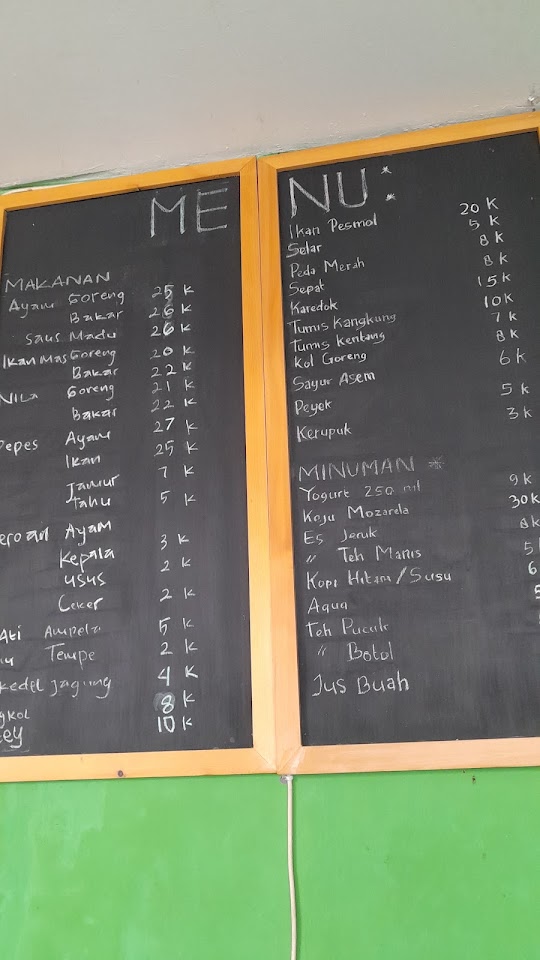 ME
MAKANAN
Ayam Goreng 25 K
Bakar 26 K
Saus Madu 26 K
Ikan Mas Goreng 20 K
Bakar 22 K
NILA Goreng 21 K
Bakar 22 K
Pepes Ayam 27 K
Ikan 25 K
Jamur 7 K
Tahu 5 K
eroan Ayam
Kepala 3 K
usus 2 K
Ceker 2 K
Ati Ampela 5 K
Tempe 2 K
kedel jagung 4 K
gkol 8 K
ey 10 K
NU :
Ikan Pesmol 20 K
Selar 5 K
Peda Merah 8 K
Sepat 8 K
Karedok 15 K
Tumis Kangkung 10 K
Tumis kentang 7 K
Kol Goreng 8 K
Sayur Asem 6 K
Peyek 5 K
Kerupuk 3 K
MINUMAN *
Yogurt 250 ml 9 K
Keju Mozarela 30 K
Es Jeruk 8 K
" Teh Manis 5
Kopi Hitam / Susu 6
Aqua 5
Teh Pucuk
" Botol
Jus Buah